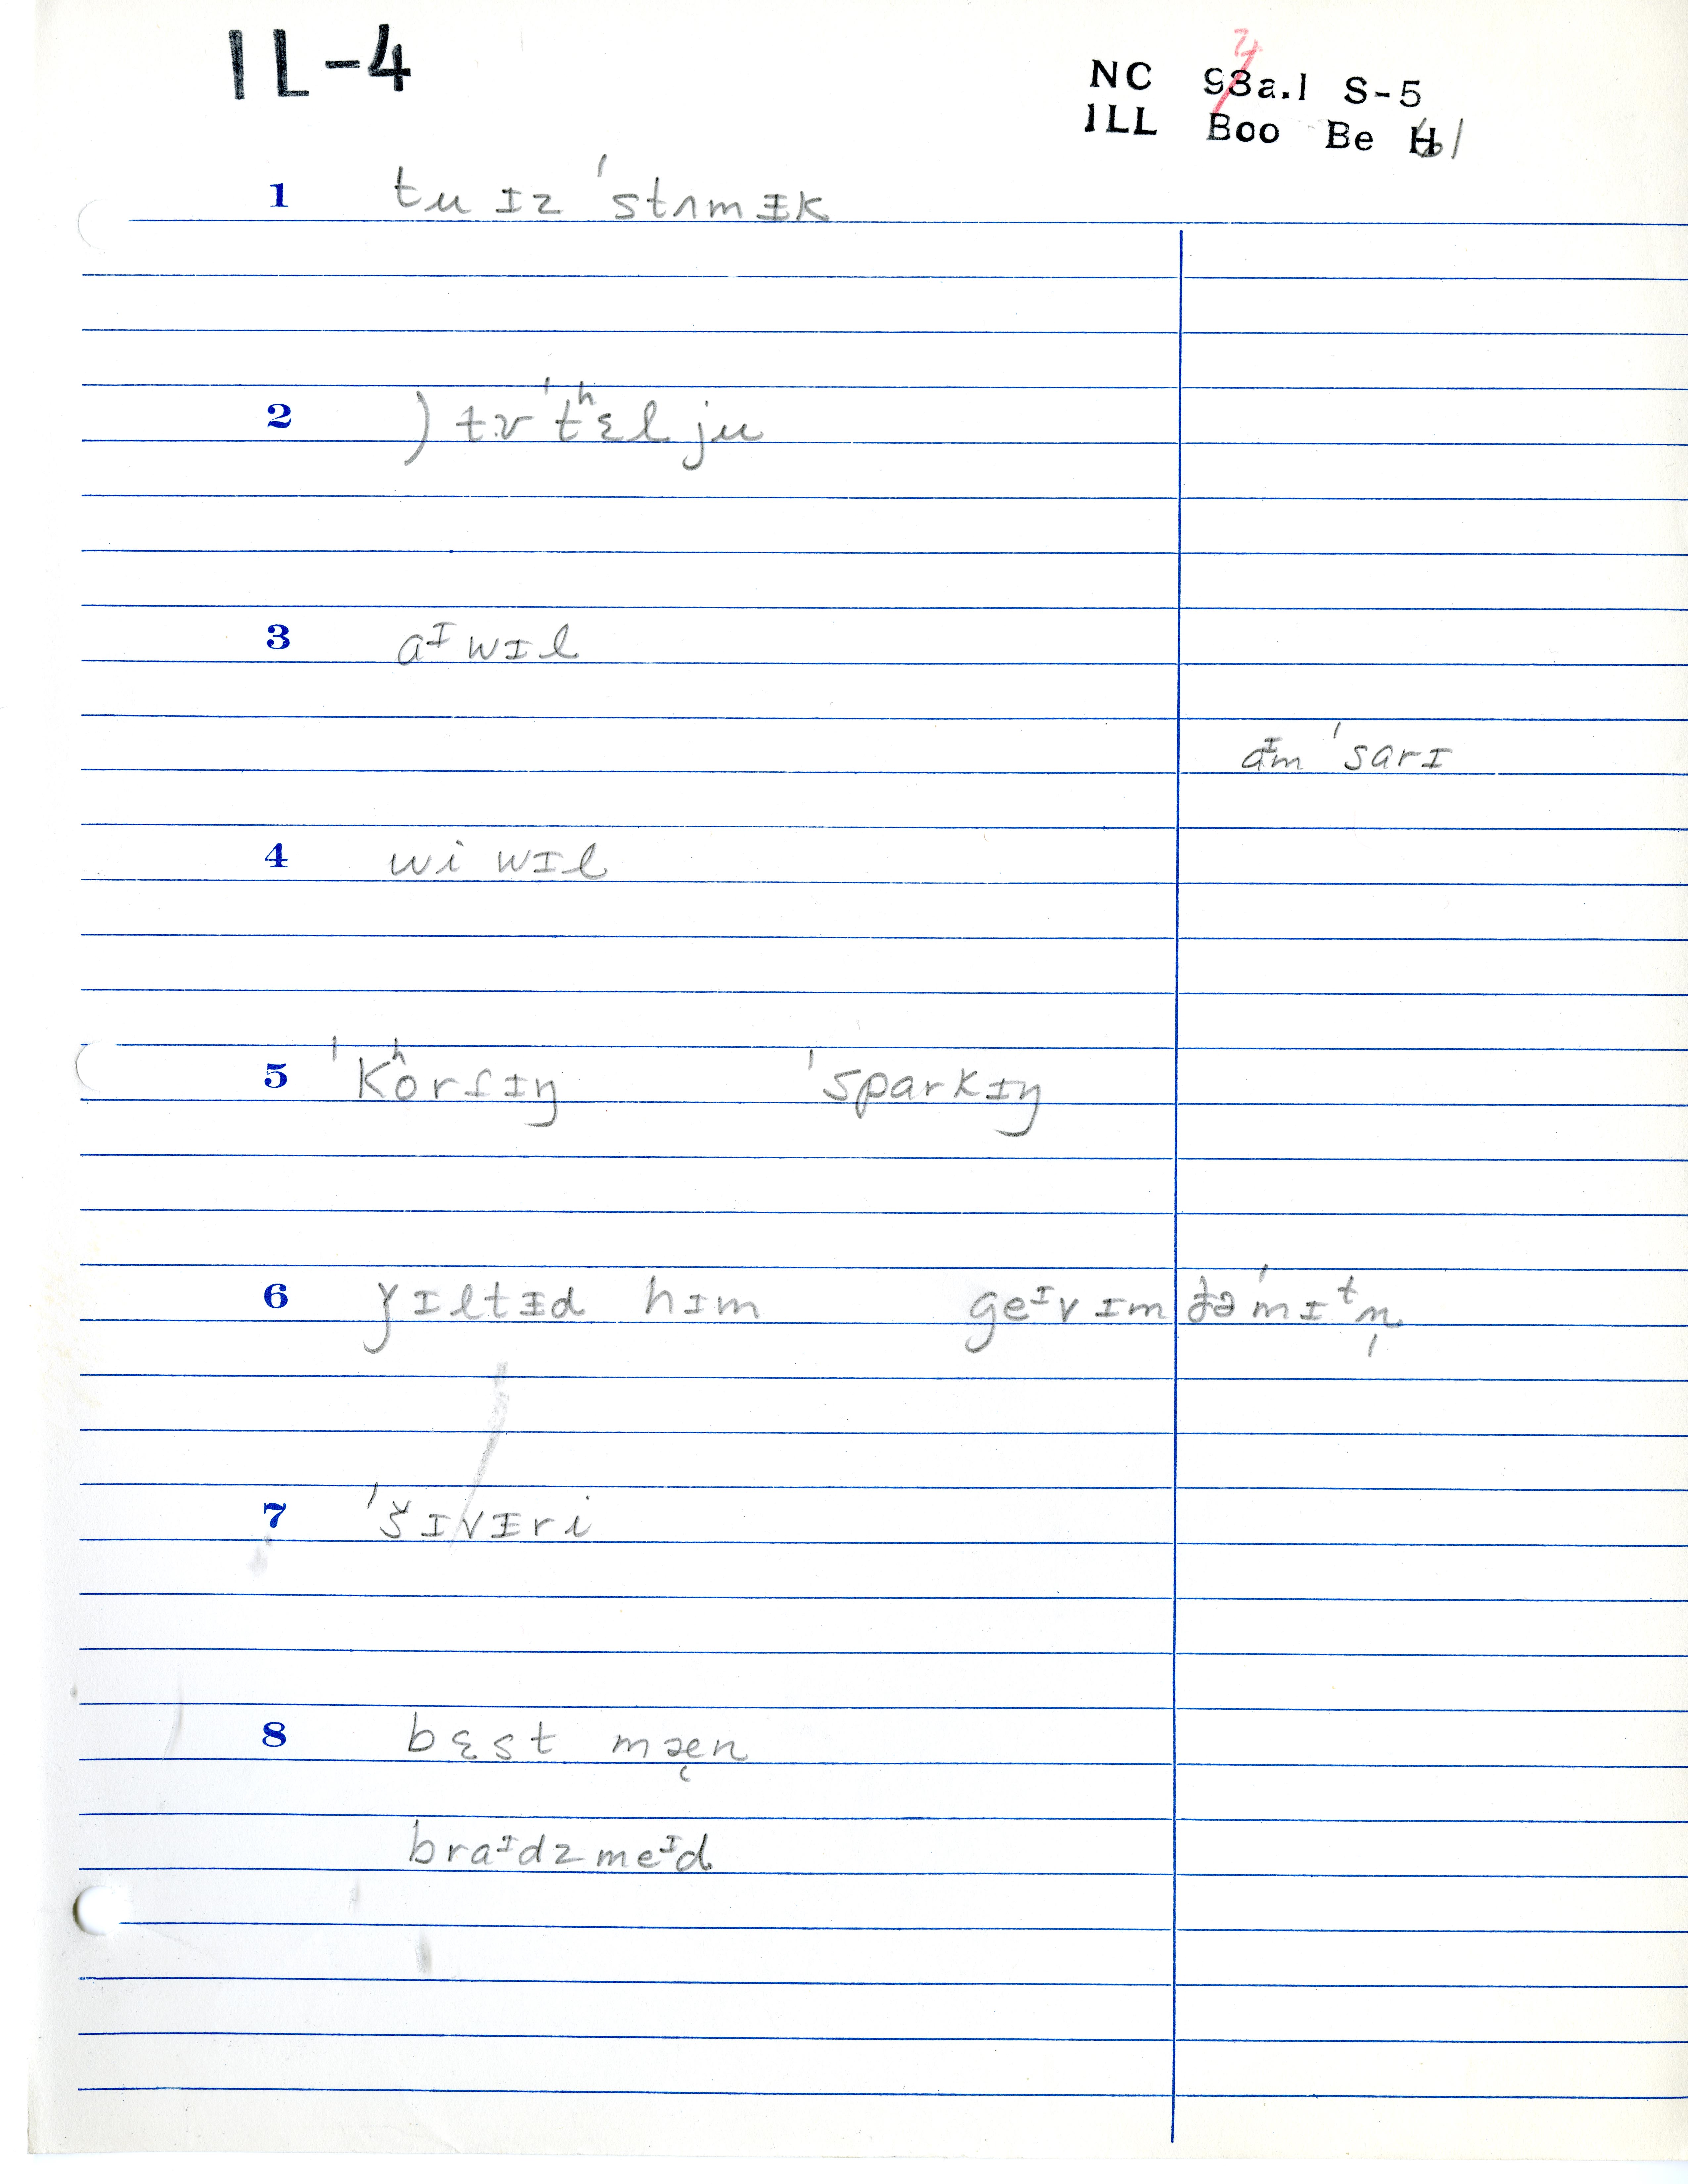 IL-4
NC 93a.1 S-5
ILL Boo Be 61
1 tu ɪz ˈstʌmɪ̵k
2 ) tʊ ˈtʰɛl ju
3 aᴵ wɪl
aᴵm ˈsarɪ
4 wi wɪl
5 ˈkʰorṭɪŋ ˈsparkɪŋ
6 ǰɪltɪ̵d hɪm geᴵv ɪm ðə ˈmɪᵗn̩
7 ˈšɪvɪ̵ri
8 bɛst mæ̨n
braᴵdzmeᴵd